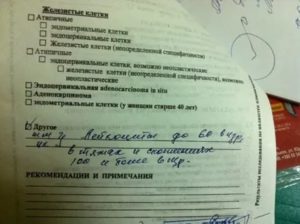 Железистые клетки
□ Атипичные
□ эндометриальные клетки
□ эндоцервикальные клетки
□ Железистые клетки (неопределенной специфичности)
□ Атипичные
□ эндоцервикальные клетки, возможно неопластические
□ железистые клетки (неопределенной специфичности), возможно
неопластические
□ Эндоцервикальная adenocarcinoma in situ
□ Аденокарцинома
□ эндометриальные клетки (у женщин старше 40 лет)
Другое
Лейкоциты до 60 в п/зр,
в тяжах и скоплениях
100 и более в п/зр.
РЕКОМЕНДАЦИИ И ПРИМЕЧАНИЯ